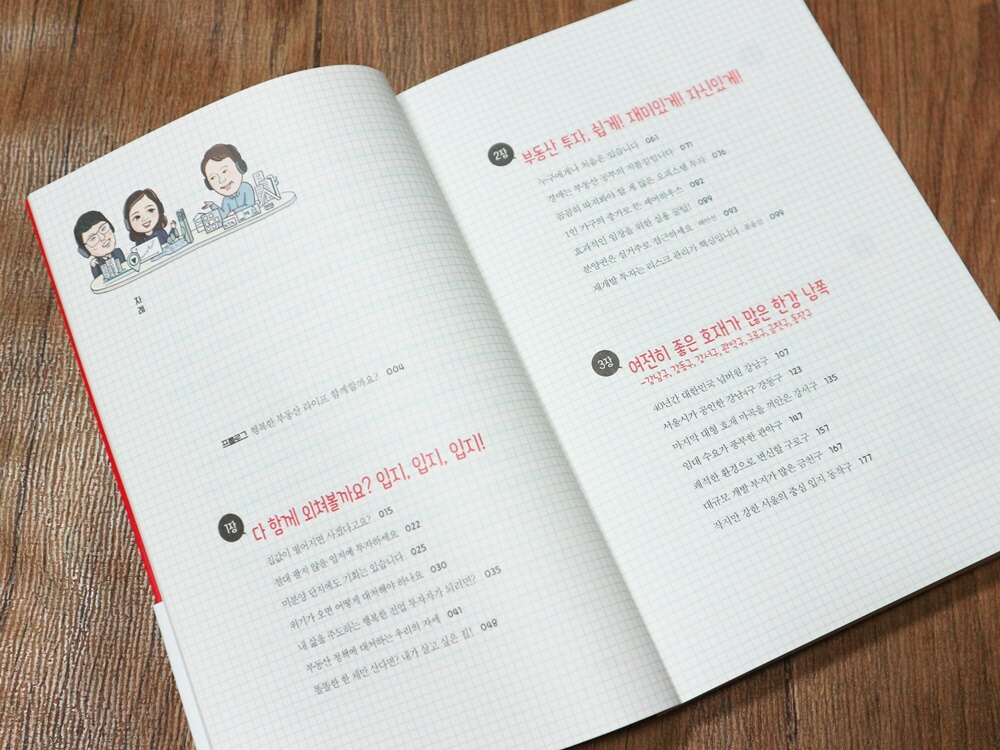 차례
프롤로그 행복한 부동산 라이프 함께할까요? 004
1장 다 함께 외쳐볼까요? 입지, 입지, 입지!
집값이 떨어지면 사겠다고요? 015
절대 팔지 않을 입지에 투자하세요 022
미분양 단지에도 기회는 있습니다 025
위기가 오면 어떻게 대처해야 하나요 030
내 삶을 주도하는 행복한 전업 투자자가 되려면? 035
부동산 정책에 대처하는 우리의 자세 041
똘똘한 한 채만 산다면? 내가 살고 싶은 집! 048
2장 부동산 투자, 쉽게! 재미있게! 자신있게!
누구에게나 처음은 있습니다 061
경매는 부동산 공부의 지름길입니다 071
꼼꼼히 따져봐야 할 게 많은 오피스텔 투자 076
1인 가구의 증가로 뜬 셰어하우스 082
효과적인 임장을 위한 실용 꿀팁! 089
분양권은 실거주로 접근하세요 093
재개발 투자는 리스크 관리가 핵심입니다 099
3장 여전히 좋은 호재가 많은 한강 남쪽
-강남구, 강동구, 강서구, 관악구, 구로구, 금천구, 동작구
40년간 대한민국 넘버원 강남구 107
서울시가 공인한 강남4구 강동구 123
마지막 대형 호재 마곡을 껴안은 강서구 135
임대 수요가 풍부한 관악구 147
쾌적한 환경으로 변신할 구로구 157
대규모 개발 부지가 많은 금천구 167
작지만 강한 서울의 중심 입지 동작구 177